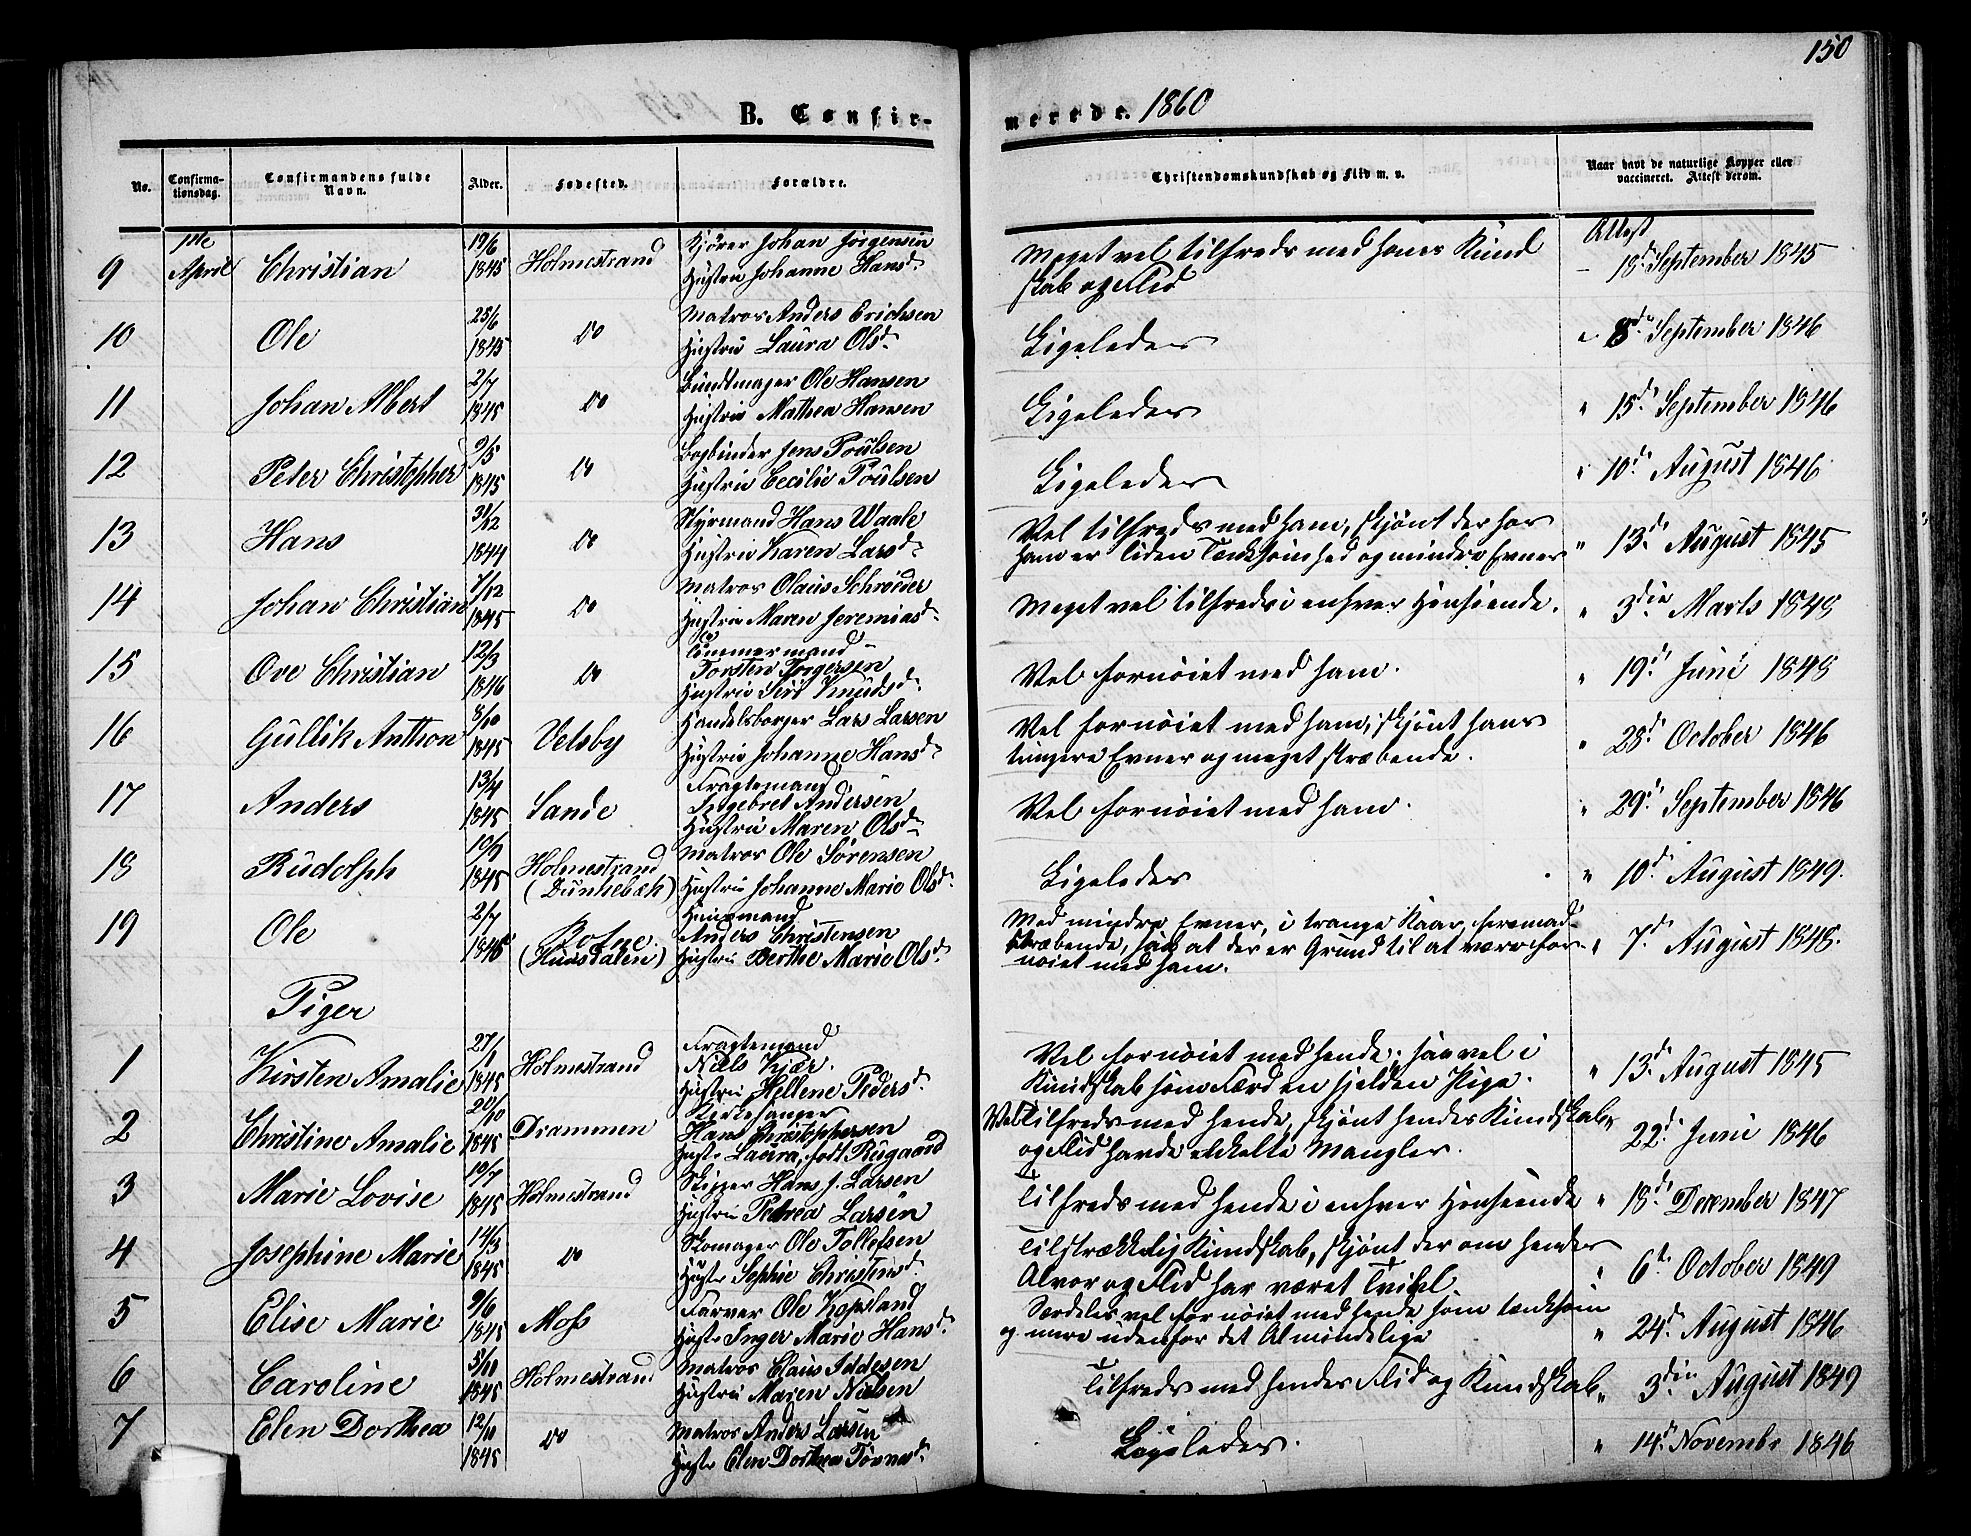 150
B. Confir-
merede. 1860
No.
Confirma-
tionsdag.
Confirmandens fulde
Navn.
Alder.
Fødested.
Forældre.
Christendomskundskab og Flid m. v.
Naar havt de naturlige Kopper eller
vaccineret. Attest derom.
9 1ste April Christian 19/6 1845 Holmestrand
Kjører Johan Jörgensen
Hustru Johanne Hansd.
Meget vel tilfreds med hans Kund
skab og Flid
Attest
18d. September 1845
10 Ole 25/6 1845 Do
Matros Anders Erichsen
Hustru Laura Olsd.
Ligeledes
" 8d. September 1846
11 Johan Albert 2/7 1845 Do
Bundtmager Ole Hansen
Hustru Mathea Hansen
Ligeledes
" 15d. September 1846
12 Peter Christopher 9/5 1845 Do
Bogbinder Jens Poulsen
Hustru Cecilie Poulsen
Ligeledes
" 10d. August 1846
13 Hans 31/12 1844 Do
Styrmand Hans Waale
Hustru Karen Larsd.
Vel tilfreds med ham, skjönt der hos
ham er liden Tænksomhed og mindre Evner
" 13d. August 1845
14 Johan Christian 7/12 1845 Do
Matros Olaus Schrøder
Hustru Maren Jeremiasd.
Meget vel tilfreds i enhver Henseende.
" 3die Marts 1848
15 Ove Christian 12/3 1846 Do
Tömmermand
Torsten Torgersen
Hustru Siri Knudsd.
Vel fornöiet med ham.
" 19d. Juni 1848
16 Gullik Anthon 8/10 1845 Velsby
Handelsborger Lars Larsen
Hustru Johanne Hansd.
Vel fornöiet med ham, skjönt hans
tungere Evner og meget stræbende.
" 28d. October 1846
17 Anders 13/4 1845 Sande
Fragtemand
Ingebret Andersen
Hustru Maren Olsd.
Vel fornöiet med ham.
" 29d. September 1846
18 Rudolph 10/9 1845 Holmestrand
(Dunkebæk)
Matros Ole Sörensen
Hustru Johanne Marie Olsd.
Ligeledes
" 10d. August 1849.
19 Ole 2/7 1845 Botne
Huusmand
Anders Christensen
Hustru Berthe Marie Olsd.
Med mindre Evner, i trange Kaar,
stræbende, saa at der er Grund til at være for-
nöiet med ham.
" 7d. August 1848.
Piger
1 Kirsten Amalie 27/1 1845 Holmestrand
Fragtemand
Niels Kjær.
Hustru Hellene Pedersd.
Vel fornöiet med hende, saavel i
Kundskab som Færd en sjelden Pige.
" 13d. August 1845
2 Christine Amalie 20/10 1845 Drammen
Kirkesanger
Hans Christophersen
Hustr. Laura, født Rugaard
Vel tilfreds med hende, skjönt hendes Kundskab
og Flid havde enkelte Mangler.
22d. Juni 1846
3 Marie Lovise 19/7 1845 Holmestrand
Skipper Hans J. Larsen
Hustru Petrea Larsen
Tilfreds med hende i enhver Henseende
" 18d. December 1847
4 Josephine Marie 14/3 1845 Do
Skomager Ole Tollefsen
Hustr. Sophie Christensd.
Tilstrækkelig Kundskab, skjönt der om hendes
Alvor og Flid har været Tvivl.
" 6t. October 1849
5 Elise Marie 9/6 1845 Moss
Farver Ole Kopsland
Hustr. Inger Marie Hansd.
Særdeles vel fornöiet med hende som tænksom
og mere udenfor det Almindelige
" 24d. August 1846
6 Caroline 5/10 1845 Holmestrand
Matros Claus Iddesen
Hustru Maren Nielsen
Tilfreds med hendes Flid og Kundskab
" 3die August 1849
7 Elen Dorthea 12/11 1845 Do
Matros Anders Larsen
Hustr. Elen Dorthea
Ligeledes.
" 14d. Novembr 1846